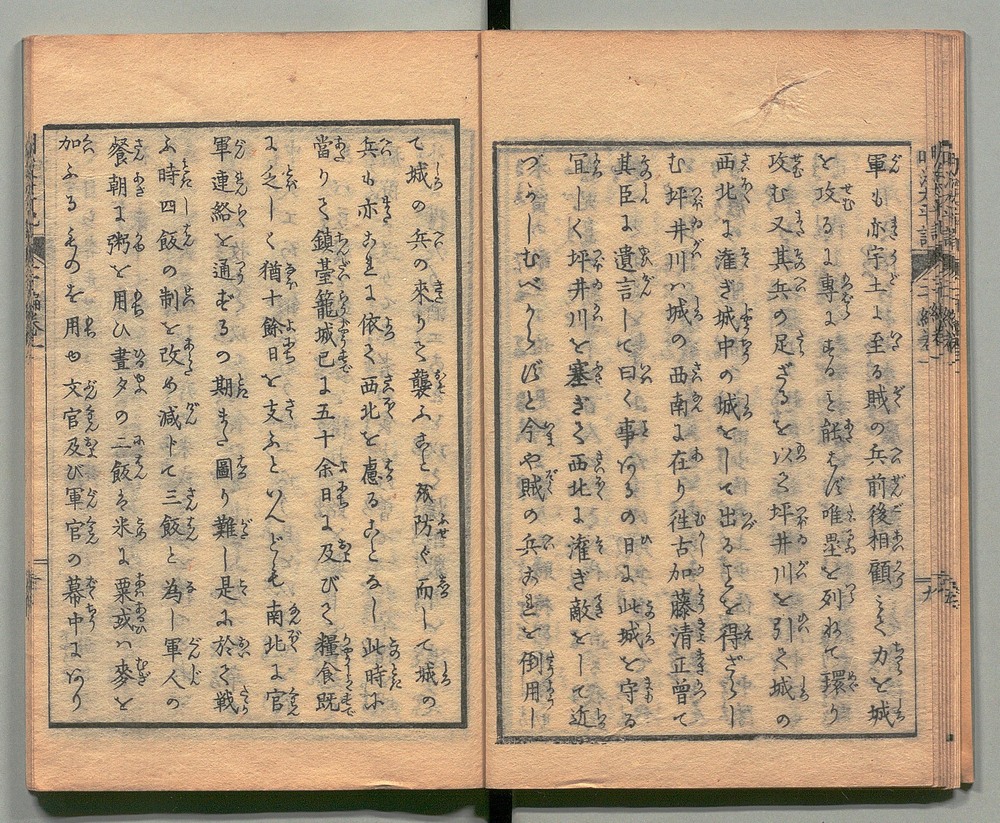 軍も亦宇土に至る賊の兵前後相顧ミて力を城
を攻るに專にする を能はず唯壘を列ねて環り
攻む又其兵の足ざるを以て坪井川を引て城の
西北に潅ぎ城中の城をして出ることを得ざらし
む坪井川ハ城の西南に在り徃古加藤清正曾て
其臣に遺言して曰く事あるの日に此城を守る
宜しく坪井川を塞ぎて西北に潅ぎ敵をして近
づらしむべからずと今や賊の兵おれを倒用し
て城の兵の来りて襲ふことを防ぐ而して城の
兵も亦これに依て西北を慮ることなし此時に
當りて鎮䑓籠城已に五十余日に及びて糧食既
に乏しく猶十餘日を支ふといへども南北に官
軍連絡を通ずるの期また圖り難し是に於て戦
ふ時四飯の制を改め減トて三飯と為し軍人の
餐朝に粥を用ひ晝夕の二飯は米に粟或ハ麥を
加ふるものを用ゆ文官及び軍官の幕中にあり